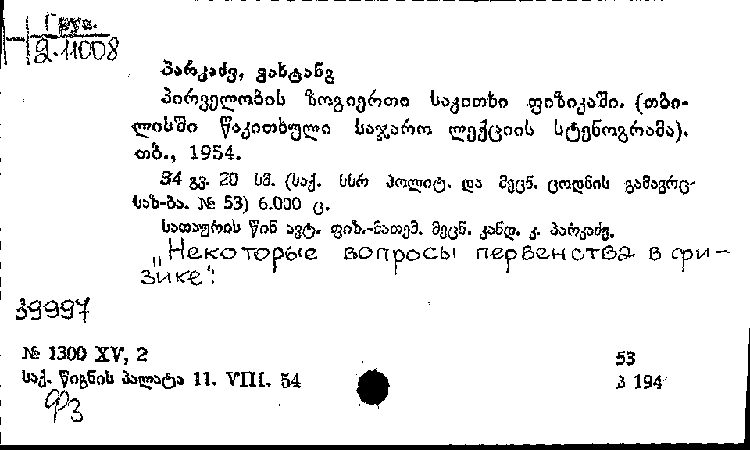 Груз.
2-11008
პარკაძე, ვახტანგ
პირველობის ზოგიერთი საკითხი ფიზიკაში. (თბი-
ლისში წაკითხული საჯარო ლექციის სტენოგრამა).
თბ., 1954.
34 გვ. 20 სმ. (საქ. სსრ პოლიტ. და მეცნ. ცოდნის გამავრც.
საზ-ბა. № 53) 6.000 ც.
სათაურის წინ ავტ. ფიზ.-მათემ. მეცნ. კანდ. ვ. პარკაძე.
„Некоторые вопросы первенства в фи-
зике".
39997
№ 1300 XV, 2
53
საქ. წიგნის პალატა 11. VIII. 54
პ 194